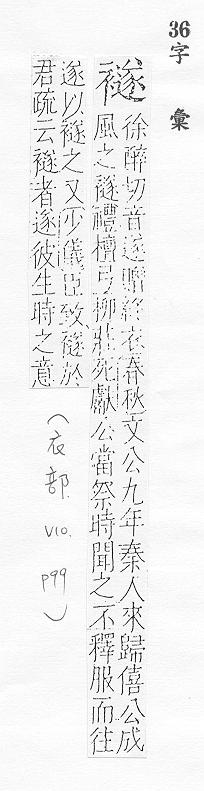 36字 彙
襚 徐醉切音遂贈終衣春秋文公九年秦人來歸僖公成
風之襚禮檀弓柳莊死獻公當祭時聞之不釋服而往
遂以襚之又少儀臣致襚於
君疏云襚者遂彼生時之意
(衣部. V10. P99)